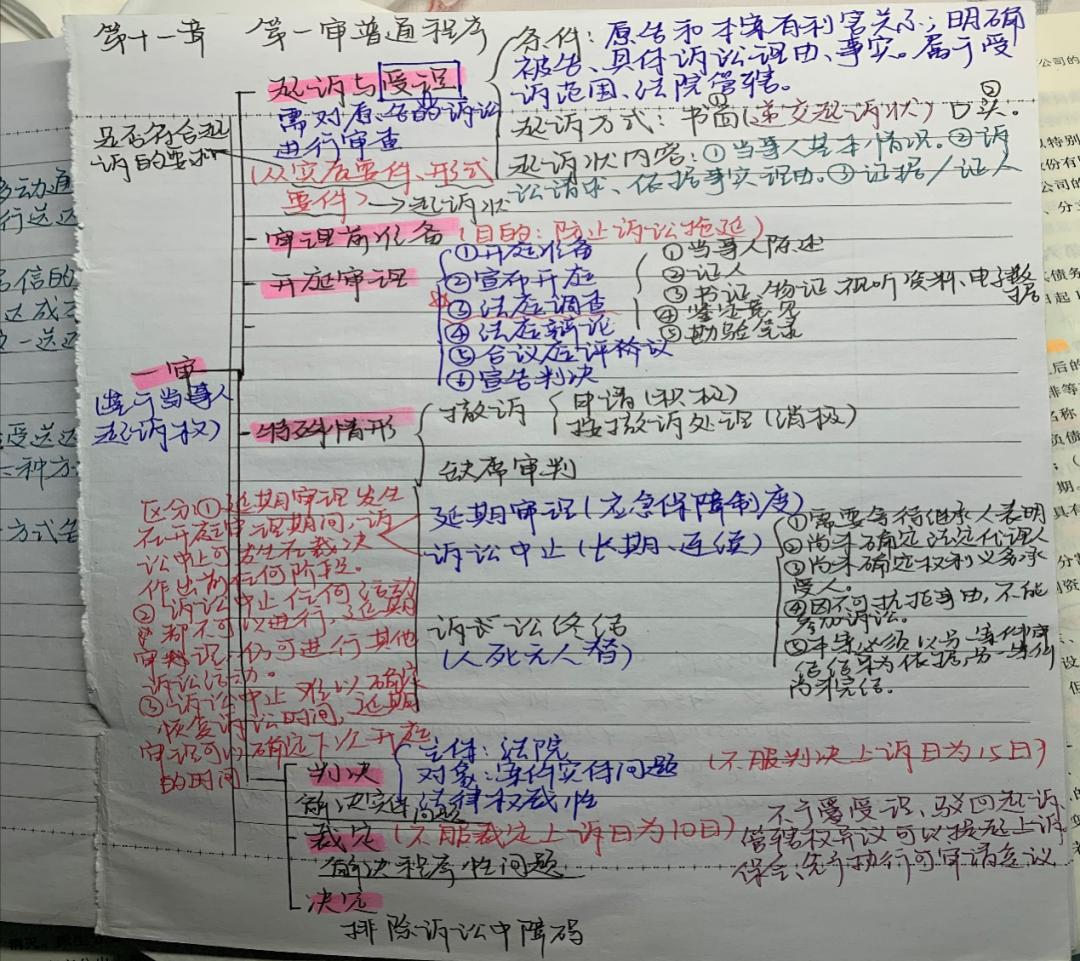 第十一章 第一审普通程序
起诉与受理
需对原告的诉讼
进行审查
是否符合起
诉的要求
(从实质要件、形式
要件)→起诉状
条件：原告和本案有利害关系；明确
被告、具体诉讼理由、事实。属于受
诉范围、法院管辖。
起诉方式：书面①(递交起诉状)口头②。
起诉状内容：①当事人基本情况。②诉
讼请求、依据事实理由。③证据/证人
审理前准备(目的：防止诉讼拖延)
开庭审理
①开庭准备
②宣布开庭
③法庭调查
④法庭辩论
⑤合议庭评议
⑥宣告判决
①当事人陈述
②证人
③书证、物证、视听资料、电子数据
④鉴定意见
⑤勘验笔录
一审
(基于当事人
起诉权)
特殊情形
撤诉
申请(积极)
按撤诉处理(消极)
缺席审判
延期审理(应急保障制度)
诉讼中止(长期、连续)
①需要等待继承人表明
②尚未确定法定代理人
③尚未确定权利义务承
受人。
④因不可抗拒事由，不能
参加诉讼。
⑤本案必须以另一案件审
结结果为依据，另一案件
尚未完结。
诉讼终结
(人死无人替)
区分：①延期审理发生
在开庭审理期间，诉
讼中止可发生在裁决
作出前任何阶段。
②诉讼中止任何活动
都不可以进行，延期
审理，仍可进行其他
诉讼活动。
③诉讼中止难以确定
恢复诉讼时间，延期
审理可以确定下次开庭
的时间
判决
解决实体问题
主体：法院
对象：案件实体问题
法律权威性
(不服判决上诉日为15日)
裁定(不服裁定上诉日为10日)
解决程序性问题
不予受理、驳回起诉
管辖权异议可以提起上诉
保全、先予执行可申请复议
决定
排除诉讼中障码